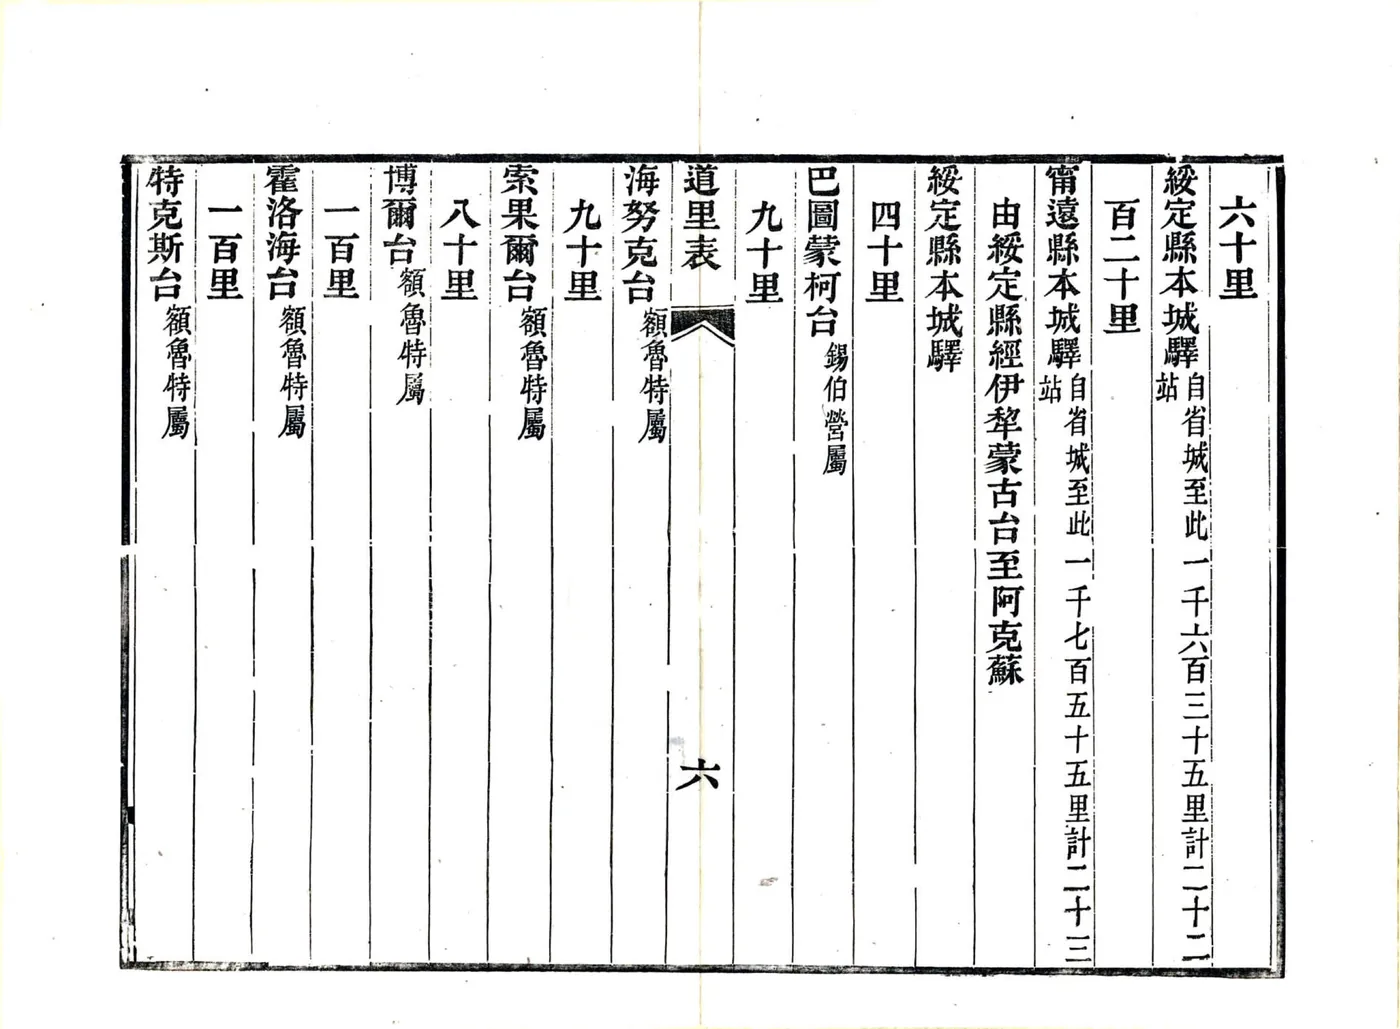 六十里
綏定縣本城驛自省城至此一千六百三十五里計二十二站
百二十里
甯遠縣本城驛自省城至此一千七百五十五里計二十三站
由綏定縣經伊犂蒙古台至阿克蘇
綏定縣本城驛
四十里
巴圖蒙柯台錫伯營屬
九十里
道里表
六
海努克台額魯特屬
九十里
索果爾台額魯特屬
八十里
博爾台額魯特屬
一百里
霍洛海台額魯特屬
一百里
特克斯台額魯特屬